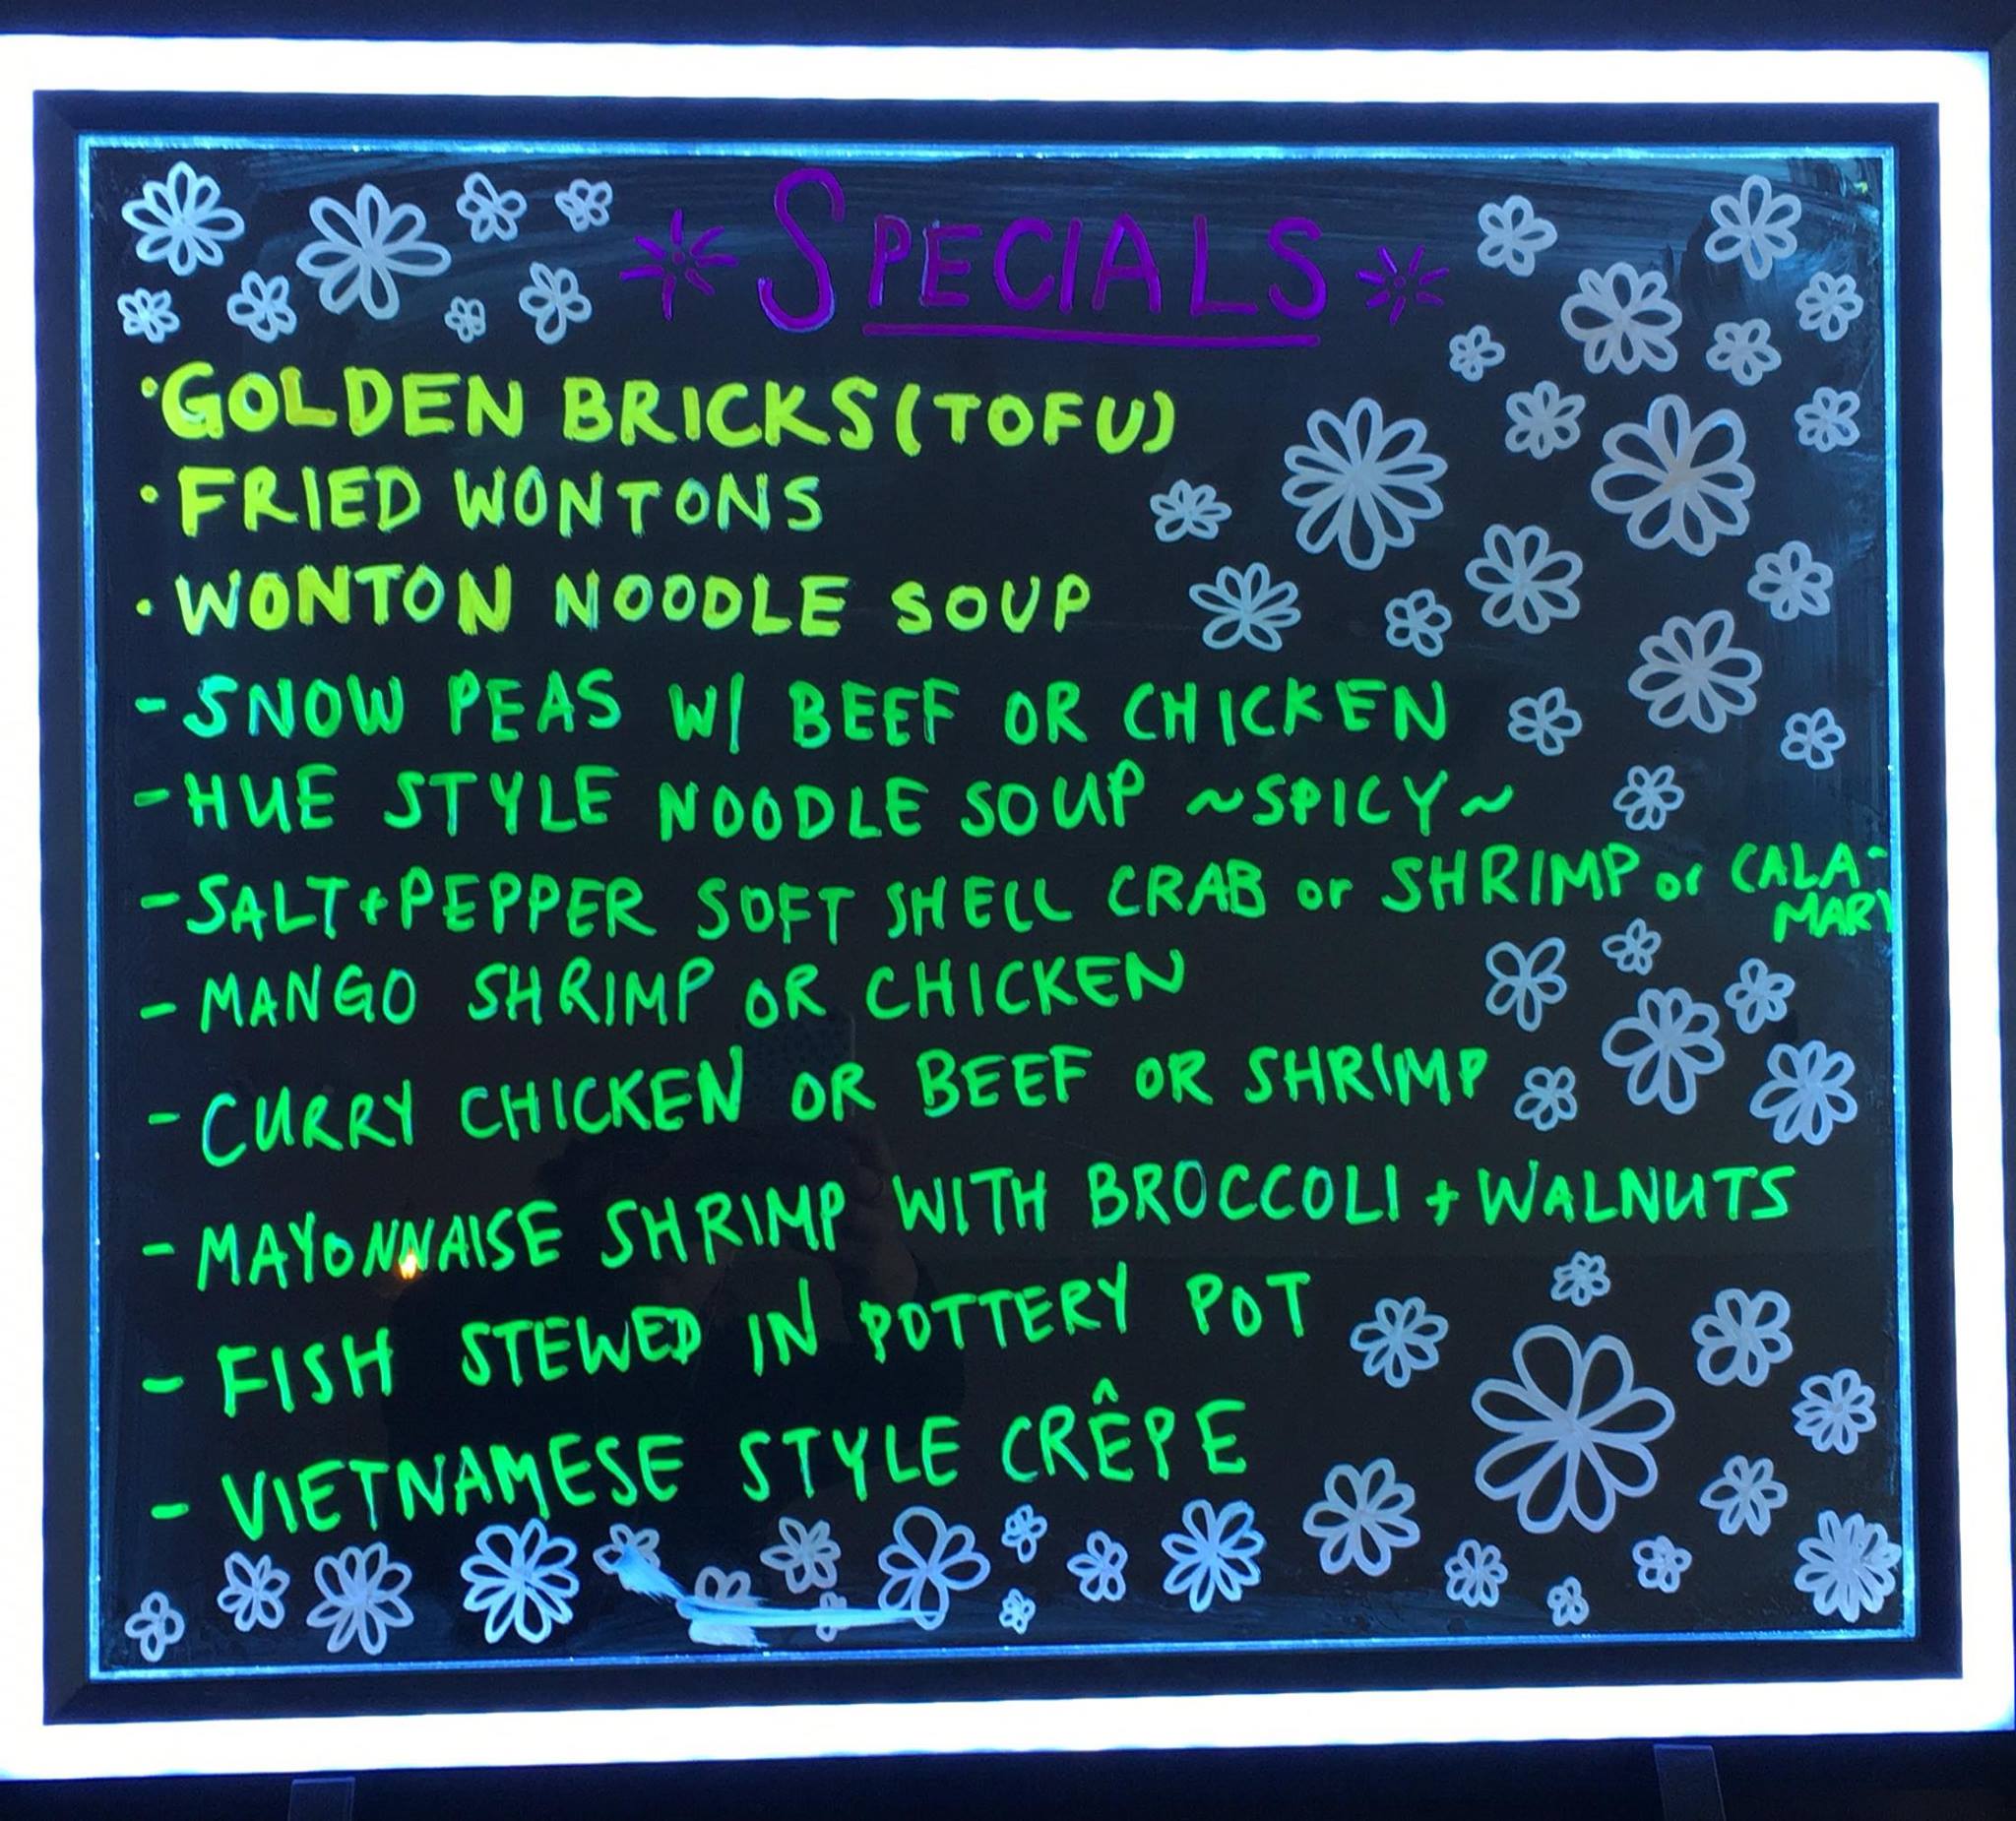 SPECIALS
·GOLDEN BRICKS (TOFU)
·FRIED WONTONS
·WONTON NOODLE SOUP
-SNOW PEAS W/ BEEF OR CHICKEN
-HUE STYLE NOODLE SOUP ~SPICY~
-SALT+PEPPER SOFT SHELL CRAB or SHRIMP or CALA-
MARI
-MANGO SHRIMP OR CHICKEN
-CURRY CHICKEN OR BEEF OR SHRIMP
-MAYONNAISE SHRIMP WITH BROCCOLI + WALNUTS
-FISH STEWED IN POTTERY POT
-VIETNAMESE STYLE CRÊPE